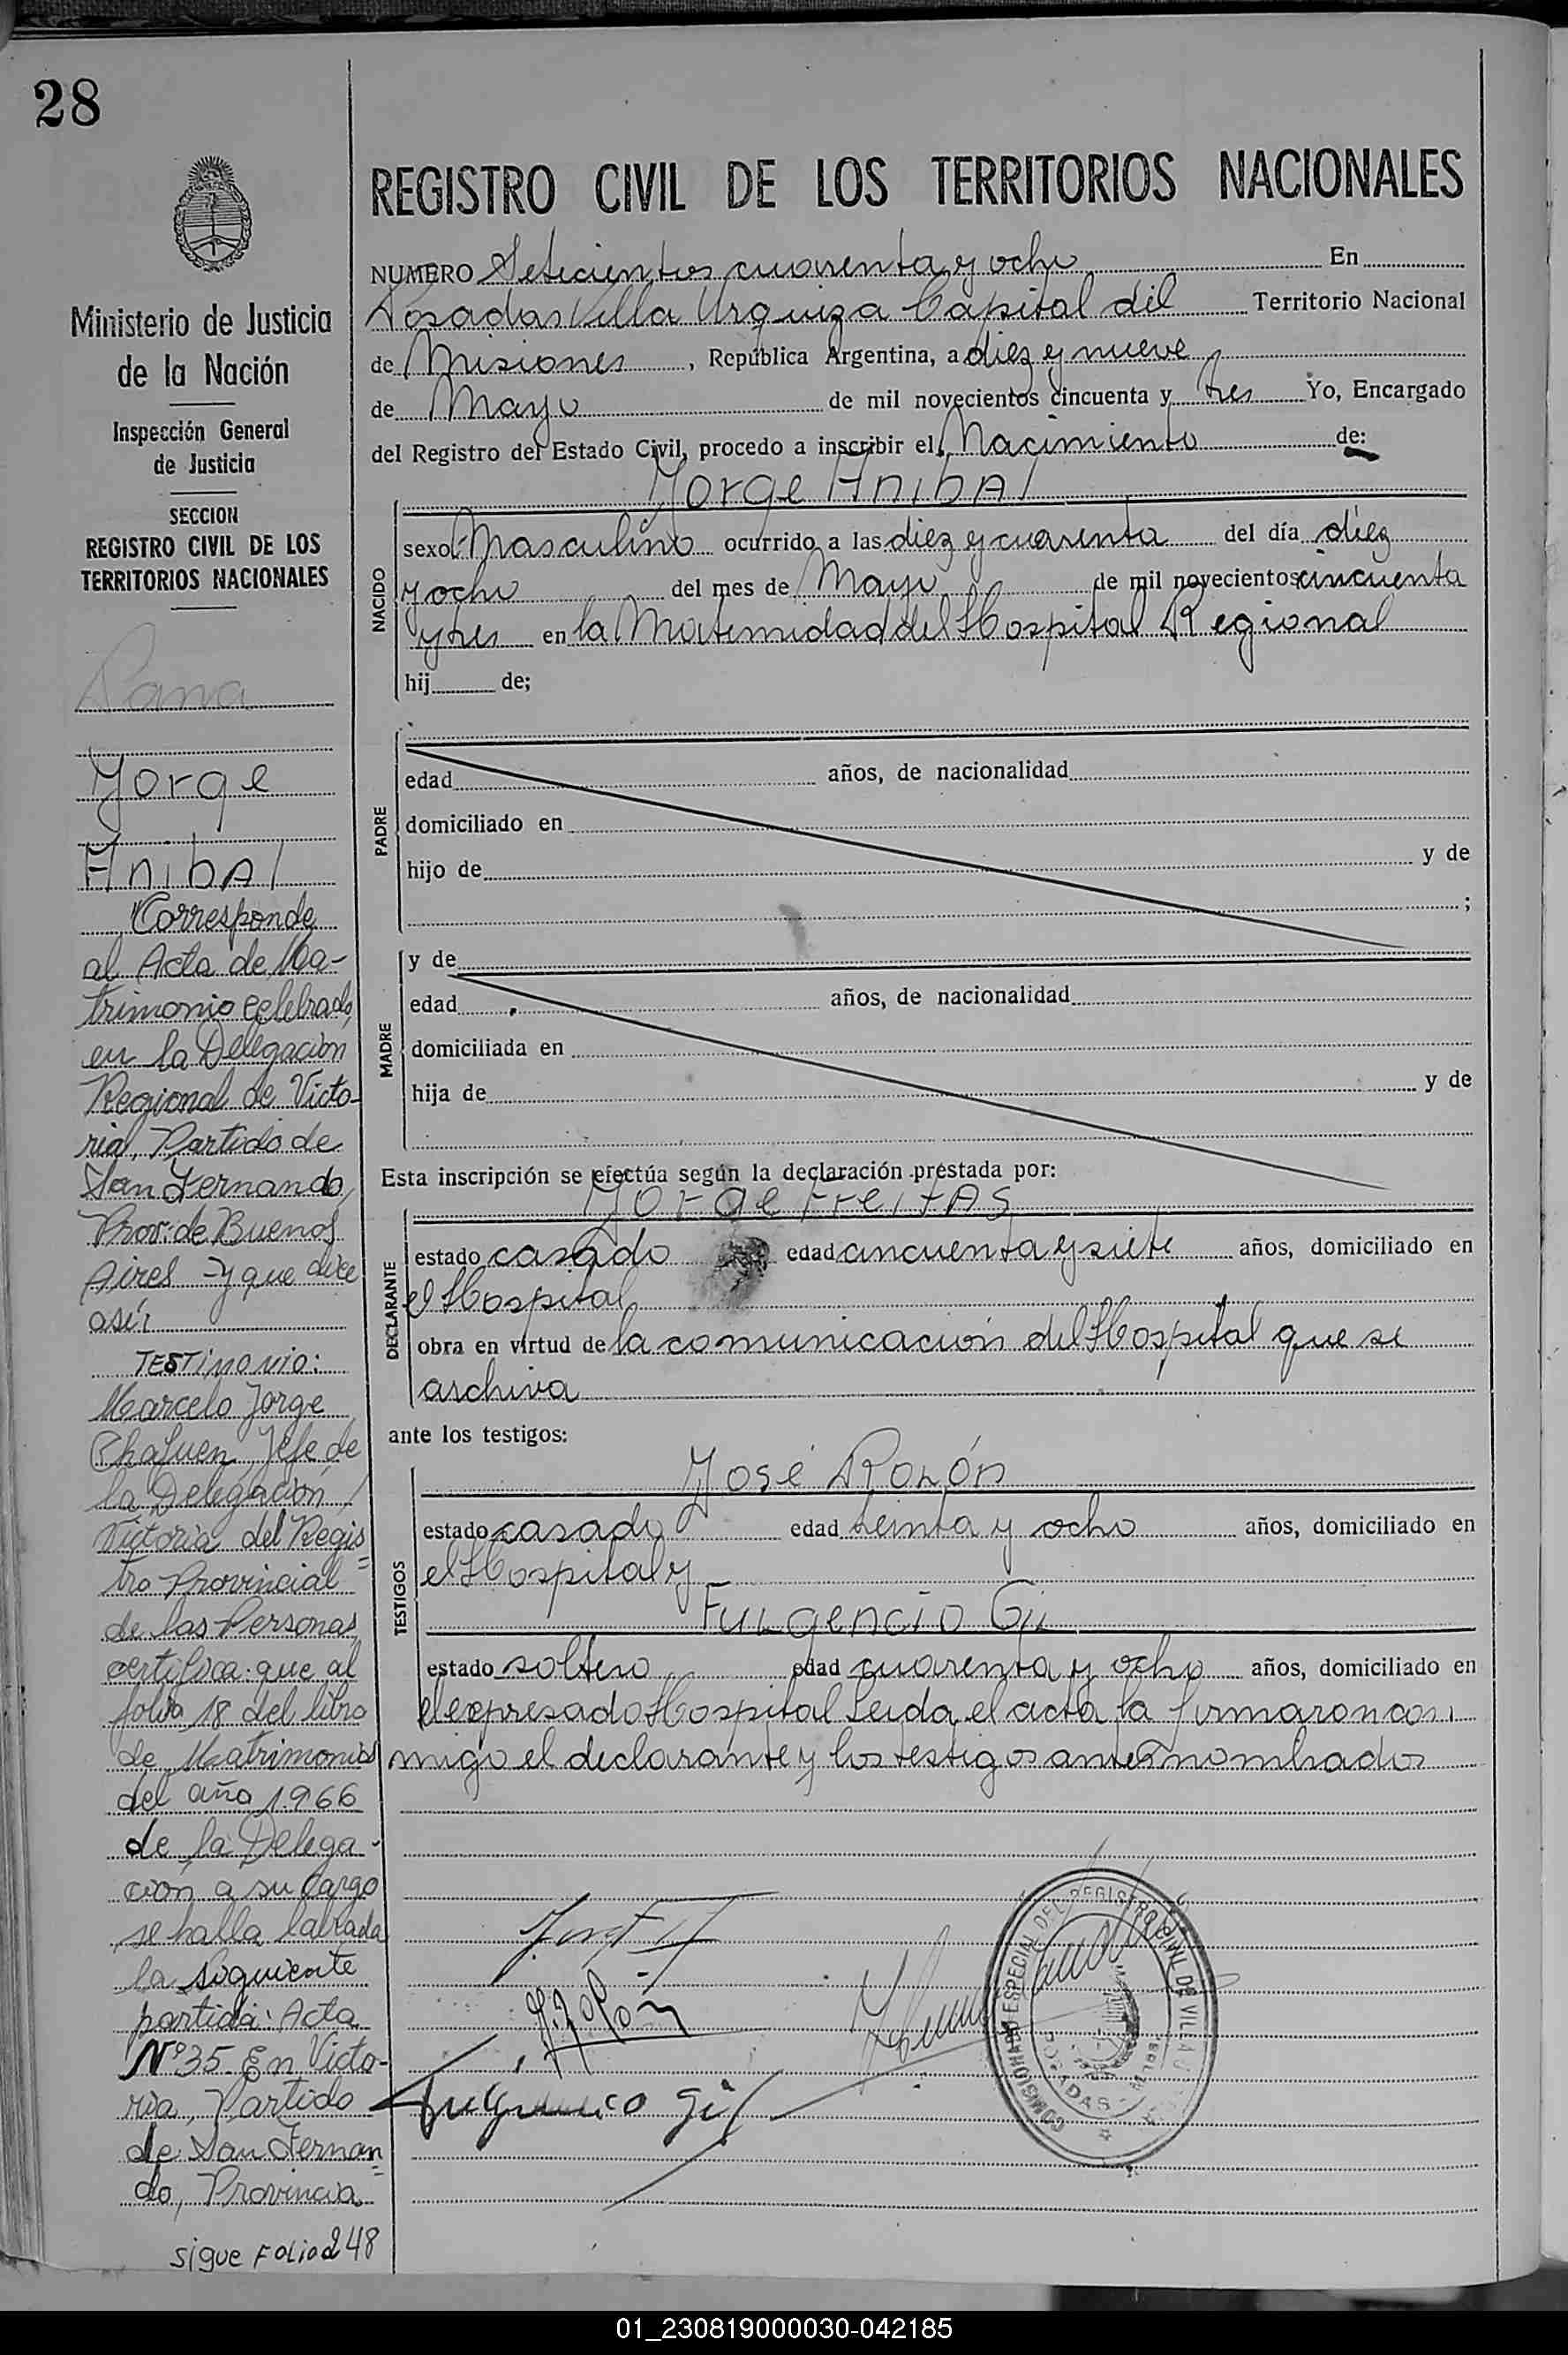 28
Ministerio de Justicia
de la Nación
Inspección General
de Justicia
SECCION
REGISTRO CIVIL DE LOS
TERRITORIOS NACIONALES
Jorge
AnibAl
Corresponde
al Acta de Ma-
trimonio celebrado
en la Delegacion
Regional de Victo-
ria, Partido de
San Fernando,
Prov. de Buenos
Aires - y que dice
así:
TESTimonio:
Marcelo Jorge
Chafuen, Jefe de
la Delegacion
Victoria del Regis=
tro Provincial
de las Personas
certifica: que al
folio 18 del libro
de Matrimonios
del año 1.966
de la Delega-
cion a su cargo
se halla labrada
la siguiente
partida: Acta
Nº 35. En Victo-
ria, Partido
de San Fernan=
do, Provincia
sigue Folio 248
REGISTRO CIVIL DE LOS TERRITORIOS NACIONALES
NUMERO Setecientos cuarenta y ocho En
Posadas Villa Urquiza Capital del Territorio Nacional
de Misiones, República Argentina, a diez y nueve
de Mayo de mil novecientos cincuenta y tres Yo, Encargado
del Registro del Estado Civil, procedo a inscribir el Nacimiento de:
Jorge AnibAl
NACIDO
sexo Masculino ocurrido a las diez y cuarenta del día diez
y ocho del mes de Mayo de mil novecientos cincuenta
y tres en la Maternidad del Hospital Regional
hij de;
PADRE
edad años, de nacionalidad
domiciliado en
hijo de y de
;
MADRE
y de
edad años, de nacionalidad
domiciliada en
hija de y de
Esta inscripción se efectúa según la declaración prestada por:
Jorge FreitAs
DECLARANTE
estado casado edad cincuenta y siete años, domiciliado en
el Hospital
obra en virtud de la comunicación del Hospital que se
archiva
ante los testigos:
TESTIGOS
José Rolón
estado casado edad treinta y ocho años, domiciliado en
el Hospital y
FulgenciO Gil
estado soltero edad cuarenta y ocho años, domiciliado en
el expresado Hospital Leida el acta la firmaron con
migo el declarante y los testigos antes nombrados
J. Rolón
Fulgencio Gil
COMISIONADO ESPECIAL DEL REGISTRO CIVIL DE VILLA
POSADAS
01_230819000030-042185